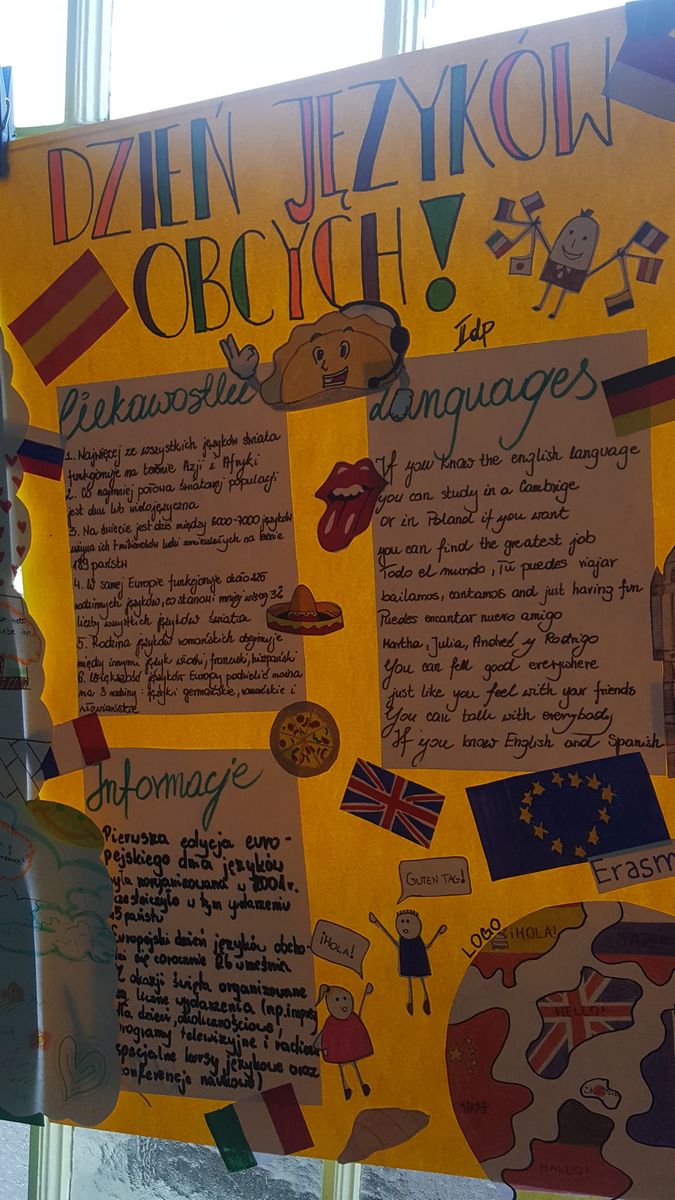 DZIEŃ JĘZYKÓW
OBCYCH!
Idp
Ciekawostki
1. Najwięcej ze wszystkich języków świata
funkcjonuje na terenie Azji i Afryki
2. Co najmniej połowa światowej populacji
jest dwu lub wielojęzyczna
3. Na świecie jest dziś między 6000-7000 języków
używa ich 7 miliardów ludzi zamieszkałych na terenie
189 państw
4. W samej Europie funkcjonuje około 225
rodzinnych języków, co stanowi mniej więcej 3%
liczby wszystkich języków świata
5. Rodzina języków romańskich obejmuje
między innymi język włoski, francuski, hiszpański
6. Większość języków Europy podzielić można
na 3 rodziny: języki germańskie, romańskie i
słowiańskie
Languages
If you know the english language
you can study in a Cambrige
or in Poland if you want
you can find the greatest job
Todo el mundo, Tú puedes viajar
bailamos, cantamos and just having fun
Puedes encantar nuevo amigo
Martha, Julia, Andreé y Rodrigo
You can fell good everywhere
just like you feel with your friends
You can talk with everybody
If you know English and Spanish
Informacje
Pierwsza edycja euro-
pejskiego dnia języków
była zorganizowana w 2001r.
uczestniczyło w tym wydarzeniu
45 państw
Europejski dzień języków obcho-
dzi się corocznie 26 września
Z okazji święta organizowane
są liczne wydarzenia (np. imprezy
dla dzieci, okolicznościowe,
programy telewizyjne i radiowe
specjalne kursy językowe oraz
konferencje naukowe)
GUTEN TAG!
¡HOLA!
Erasm
LOGO
¡HOLA!
HELLO!
HALLO!